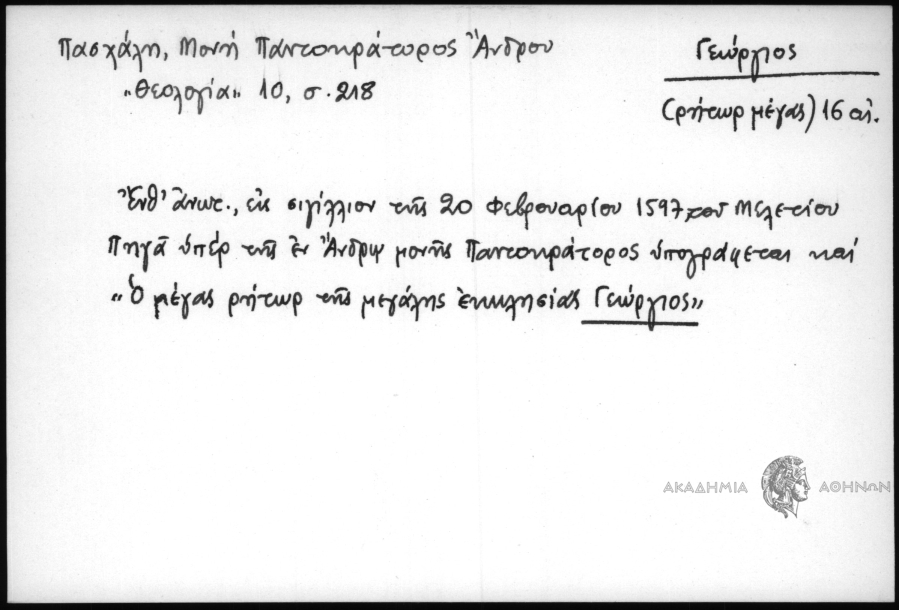 Πασχάλη, Μονή Παντοκράτορος Ἄνδρου
"Θεολογία" 10, σ. 218
Γεώργιος
(ρήτωρ μέγας) 16 αἰ.
Ἔνθ' ἄνωτ., εἰς σιγίλλιον τῆς 20 Φεβρουαρίου 1597 τοῦ Μελετίου
Πηγᾶ ὑπέρ τῆς ἐν Ἄνδρῳ μονῆς Παντοκράτορος ὑπογράφεται καί
"Ὁ μέγας ρήτωρ τῆς μεγάλης ἐκκλησίας Γεώργιος"
ΑΚΑΔΗΜΙΑ ΑΘΗΝΩΝ